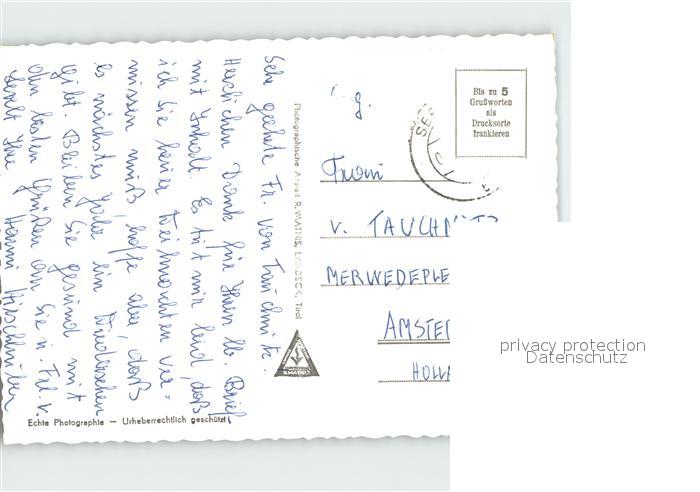 Sehr geehrte Fr. von Tauchnitz.
Herzlichen Dank für Ihren lb. Brief
mit Inhalt. Es tut mir leid, daß
ich Sie heuer Weihnachten ver-
missen muß, hoffe aber, daß
es nächstes Jahr ein Wiedersehen
gibt. Bleiben Sie gesund mit
den besten Grüßen an Sie u. Frl. v.
Hanni
Photographische Anstalt R. MATHIS, LANDECK, Tirol
R. MATHIS
Echte Photographie — Urheberrechtlich geschützt
Bis zu 5
Grußworten
als
Drucksorte
frankieren
Frau
v. TAUCHNITZ
MERWEDEPLE
AMSTER
HOLLA
privacy protection
Datenschutz